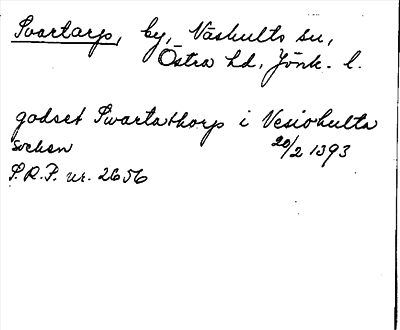 Svartarp, by, Näshults sn,
Östra hd, Jönk. l.
godset Swartathorp i Vesiohulta
socken 20/2 1393
S.R.P. nr. 2656